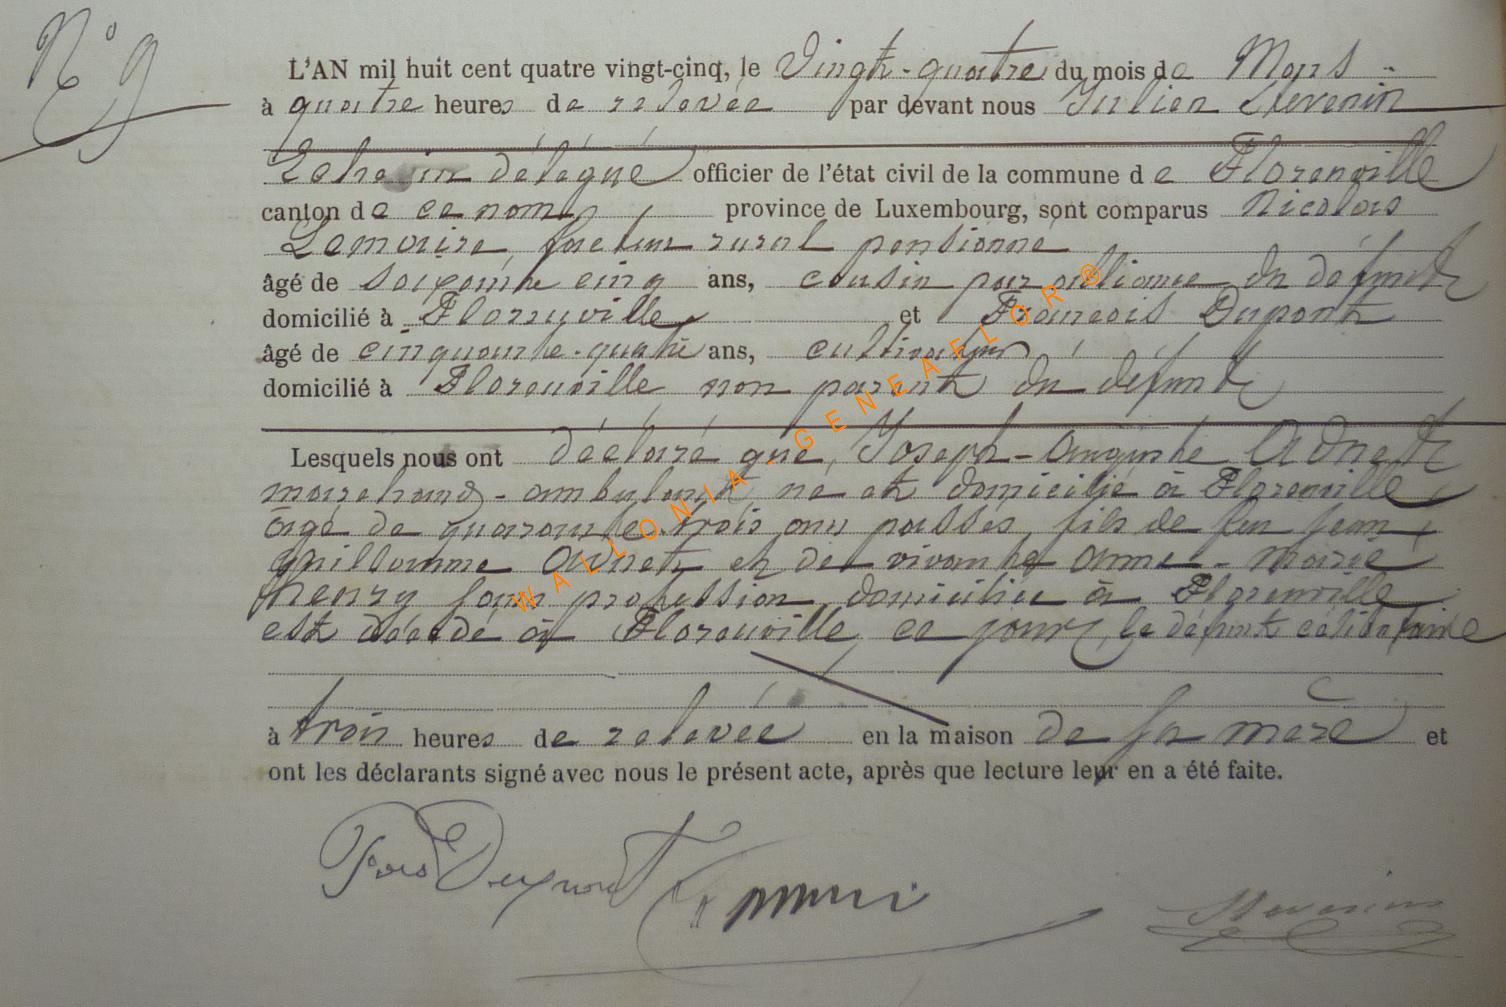 N° 9
L'AN mil huit cent quatre vingt-cinq, le Vingt-quatre du mois de Mars
à quatre heures de relevée par devant nous Julien
Echevin délégué officier de l'état civil de la commune de Florenville
canton de ce nom, province de Luxembourg, sont comparus Nicolas
Lemaire, facteur rural pensionné
âgé de soixante cinq ans, cousin par alliance du défunt
domicilié à Florenville et François Dupont
âgé de cinquante-quatre ans, cultivateur
domicilié à Florenville non parent du défunt
Lesquels nous ont déclaré que, Joseph-Auguste Adnet
marchand-ambulant, né et domicilié à Florenville,
âgé de quarante trois ans passés, fils de feu Jean
Guillaume Adnet et de vivante Anne-Marie
Henry sans profession, domiciliée à Florenville
est décédé à Florenville, ce jour, le défunt célibataire
à trois heures de relevée en la maison de sa mère et
ont les déclarants signé avec nous le présent acte, après que lecture leur en a été faite.
Fois Dupont
WALLONIA - GENEAFLOR ®